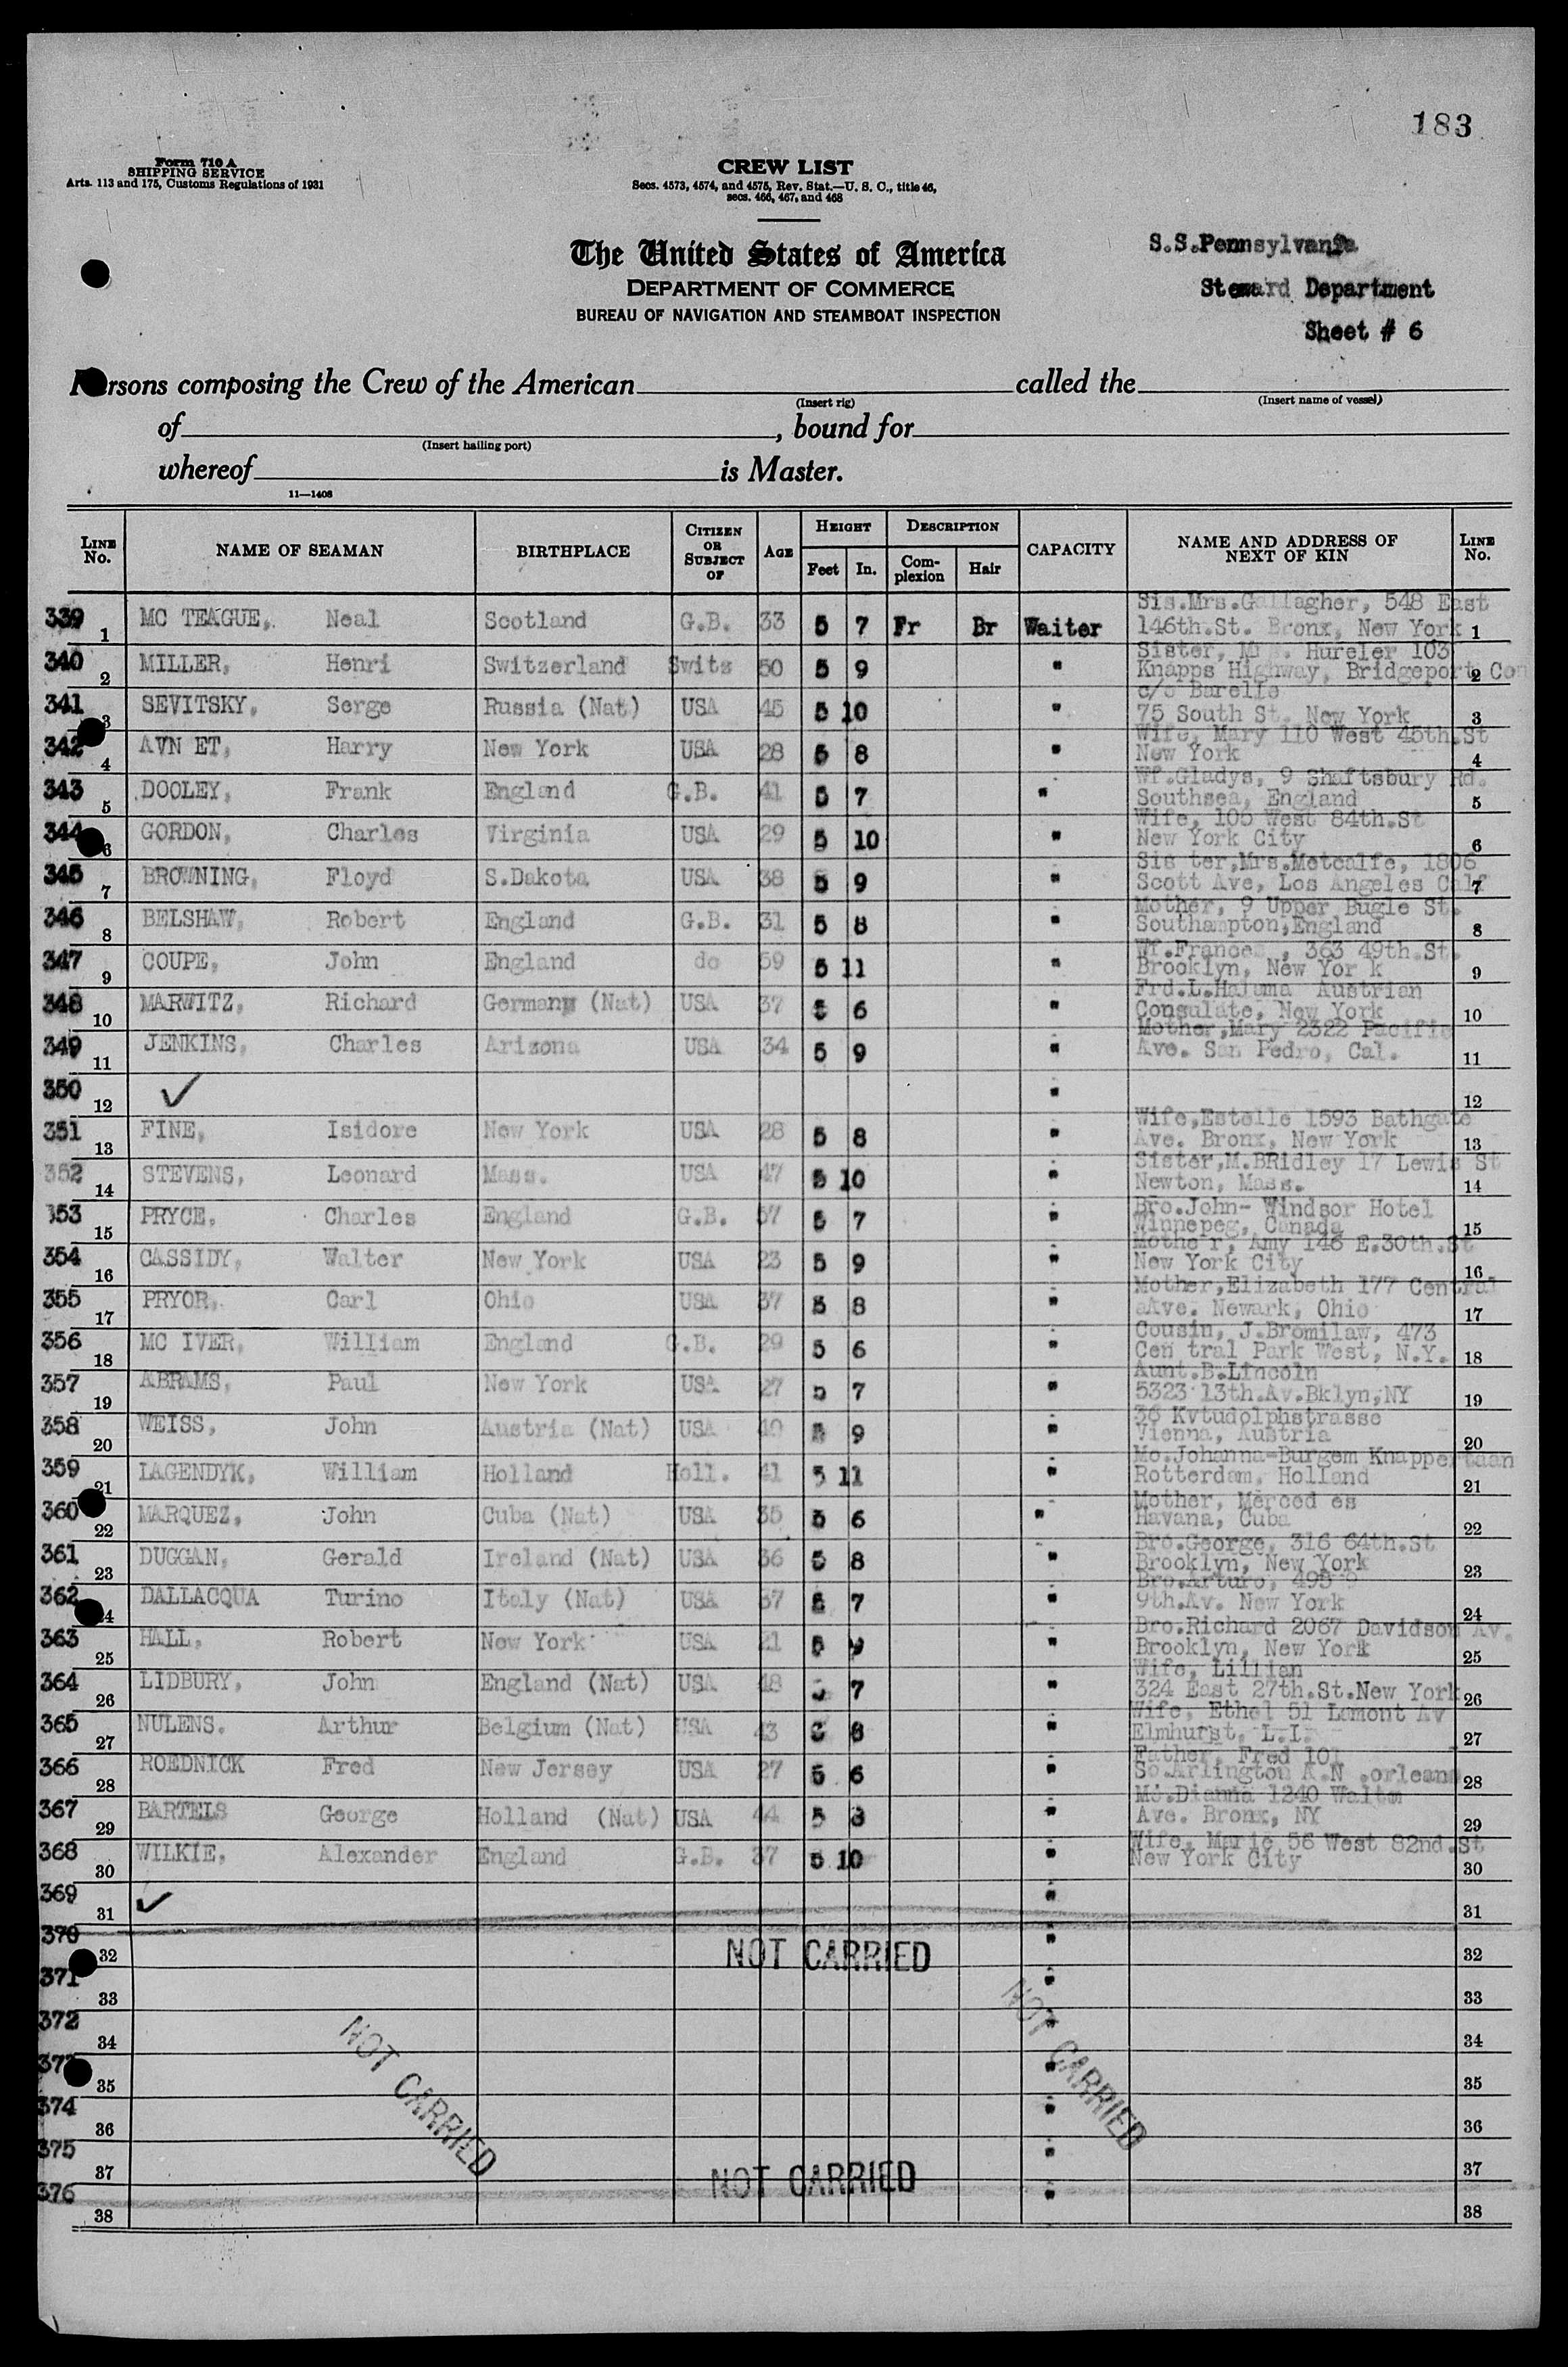 183
Form 710 A
SHIPPING SERVICE
Arts. 113 and 175, Customs Regulations of 1931
CREW LIST
Secs. 4573, 4574, and 4575, Rev. Stat.—U. S. C., title 46,
secs. 466, 467, and 468
The United States of America
DEPARTMENT OF COMMERCE
BUREAU OF NAVIGATION AND STEAMBOAT INSPECTION
S.S.Pennsylvania
Steward Department
Sheet # 6
Persons composing the Crew of the American called the
(Insert rig) (Insert name of vessel)
of , bound for
(Insert hailing port)
whereof is Master.
11—1408
LINE No. NAME OF SEAMAN BIRTHPLACE CITIZEN OR SUBJECT OF AGE HEIGHT Feet In. DESCRIPTION Complexion Hair CAPACITY NAME AND ADDRESS OF NEXT OF KIN LINE No.
Sis.Mrs.Gallagher, 548 East
339 1 MC TEAGUE, Neal Scotland G.B. 33 5 7 Fr Br Waiter 146th.St. Bronx, New York 1
Sister, Hureler 103
340 2 MILLER, Henri Switzerland Switz 50 5 9 " Knapps Highway, Bridgeport Con 2
c/o Barelle
341 3 SEVITSKY, Serge Russia (Nat) USA 45 5 10 " 75 South St. New York 3
Wife, Mary 110 West 45th.St
342 4 AVN ET, Harry New York USA 28 5 8 " New York 4
Wf.Gladys, 9 Shaftsbury Rd.
343 5 DOOLEY, Frank England G.B. 41 5 7 " Southsea, England 5
Wife, 105 West 84th.St
344 6 GORDON, Charles Virginia USA 29 5 10 " New York City 6
Sis ter,Mrs.Metcalfe, 1806
345 7 BROWNING, Floyd S.Dakota USA 38 5 9 " Scott Ave, Los Angeles Calf 7
Mother, 9 Upper Bugle St.
346 8 BELSHAW, Robert England G.B. 31 5 8 " Southampton,England 8
Wf.Frances , 363 49th.St.
347 9 COUPE, John England do 59 5 11 " Brooklyn, New Yor k 9
Frd.L.Halama Austrian
348 10 MARWITZ, Richard Germany (Nat) USA 37 5 6 " Consulate, New York 10
Mother,Mary 2322 Pacific
349 11 JENKINS, Charles Arizona USA 34 5 9 " Ave. San Pedro, Cal. 11
350 12 ✓ " 12
Wife,Estelle 1593 Bathgate
351 13 FINE, Isidore New York USA 28 5 8 " Ave. Bronx, New York 13
Sister,M.BRidley 17 Lewis St
352 14 STEVENS, Leonard Mass. USA 47 5 10 " Newton, Mass. 14
Bro.John- Windsor Hotel
353 15 PRYCE, Charles England G.B. 57 5 7 " Winnepeg, Canada 15
Mothe r, Amy 146 E.30th.St
354 16 CASSIDY, Walter New York USA 23 5 9 " New York City 16
Mother,Elizabeth 177 Central
355 17 PRYOR, Carl Ohio USA 37 5 8 " aAve. Newark, Ohio 17
Cousin, J.Bromilaw, 473
356 18 MC IVER, William England G.B. 29 5 6 " Cen tral Park West, N.Y. 18
Aunt.B.Lincoln
357 19 ABRAMS, Paul New York USA 27 5 7 " 5323 13th.Av.Bklyn,NY 19
36 Kvtudolphstrasse
358 20 WEISS, John Austria (Nat) USA 40 5 9 " Vienna, Austria 20
Mo.Johanna-Burgem Knappertaan
359 21 LAGENDYK, William Holland Holl. 41 5 11 " Rotterdam, Holland 21
Mother, Merced es
360 22 MARQUEZ, John Cuba (Nat) USA 35 5 6 " Havana, Cuba 22
Bro.George, 316 64th.St
361 23 DUGGAN, Gerald Ireland (Nat) USA 36 5 8 " Brooklyn, New York 23
Bro.Arturo, 495
362 24 DALLACQUA Turino Italy (Nat) USA 37 5 7 " 9th.Av. New York 24
Bro.Richard 2067 Davidson Av.
363 25 HALL, Robert New York USA 21 5 9 " Brooklyn, New York 25
Wife, Lillian
364 26 LIDBURY, John England (Nat) USA 48 5 7 " 324 East 27th.St.New York 26
Wife, Ethel 51 Lamont Av
365 27 NULENS. Arthur Belgium (Nat) USA 43 " Elmhurst, L.I. 27
Father, Fred 101
366 28 ROEDNICK Fred New Jersey USA 27 5 6 " So.Arlington A.N .orleans 28
Mo.Dianna 1240 Walton
367 29 BARTELS George Holland (Nat) USA 44 5 8 " Ave. Bronx, NY 29
Wife, Marie 56 West 82nd.St
368 30 WILKIE, Alexander England G.B. 37 5 10 " New York City 30
369 31 ✓ " 31
370 32 " 32
NOT CARRIED
371 33 " 33
372 34 " 34
NOT CARRIED
NOT CARRIED
373 35 " 35
374 36 " 36
375 37 " 37
NOT CARRIED
376 38 " 38